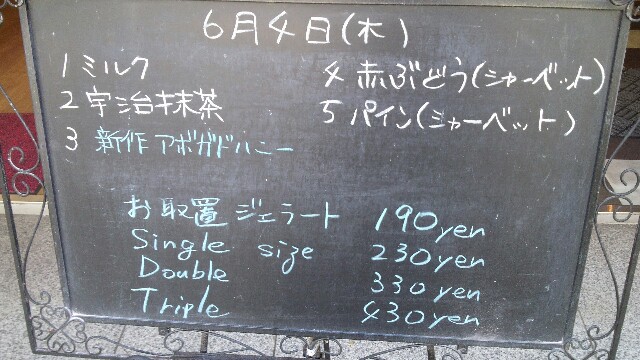 6月4日(木)
1 ミルク
2 宇治抹茶
3 新作 アボガドハニー
4 赤ぶどう(シャーベット)
5 パイン(シャーベット)
お取置ジェラート 190yen
Single size 230yen
Double 330yen
Triple 430yen